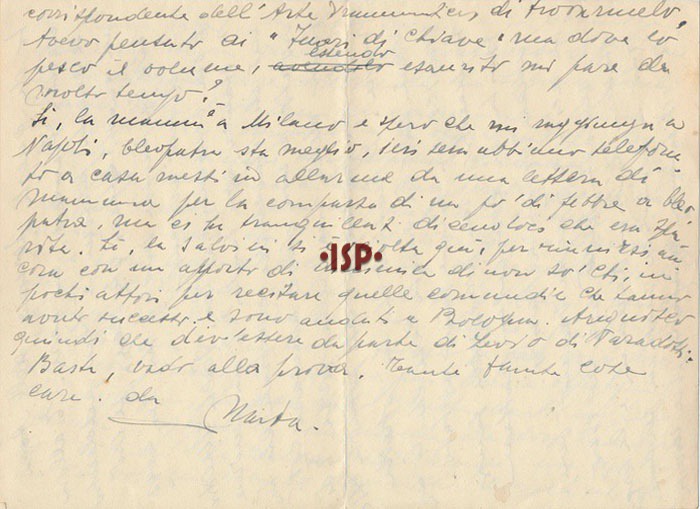 corrispondente dell'Arte Drammatica, di trovarmelo.
Avevo pensato ai "Fuori di chiave" ma dove lo
pesco il volume, essendo esaurito mi pare da
molto tempo?
Sì, la mamma è a Milano e spero che mi raggiunga a
Napoli, Cleopatra sta meglio, ieri sera abbiamo telefona
to a casa messi in allarme da una lettera di
mamma per la comparsa di un po' di febbre a Cleo
patra, ma ci ha tranquillati dicendoci che era spa
rita. Sì, la Salvini si è qui, per riunirsi an
cora con un apporto di di non so chi, in
pochi attori per recitare quelle commedie che hanno
avuto successo e sono andati a Bologna.
quindi da parte di di
Basta, vado alla prova. Tante tante cose
care. da
Marta.
·ISP·